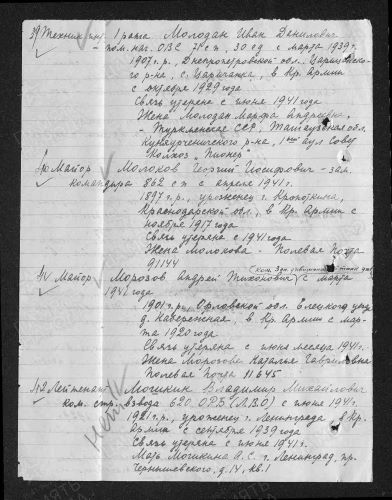 39 Техник инт. I ранга Молодан Иван Данилович
- пом. нач. ОВС 71 сп, 30 сд с марта 1939 г.
1907 г.р., Днепропетровской обл. Царичанско-
го р-на, с. Царичанка, в Кр. Армии
с октября 1929 года
Связь утеряна с июня 1941 года
Жена Молодан Марфа Андреевна
- Туркменская ССР, Ташаузская обл.
р-на, аул Совет
Колхоз „Пионер"
40 Майор Молоков Георгий Иосифович - зам.
командира 862 сп с апреля 1941 г.
1897 г.р., уроженец г. Кропоткина,
Краснодарской обл., в Кр. Армии с
ноября 1917 года
Связь утеряна с 1941 года
Жена Молокова - Полевая Почта
91144
41 Майор Морозов Андрей Тихонович (ком. с марта
1941 года
1901 г.р., Орловской обл. Елецкого уезда
д. Набережная, в Кр. Армии с мар-
та 1920 года
Связь утеряна с июня месяца 1941 г.
Жена Морозова Наталья Гавриловна
Полевая Почта 11645
42 Лейтенант Мошкин Владимир Михайлович
ком. стр. взвода 620 ОРБ (ЛВО) с июня 1941 г.
1921 г.р., уроженец г. Ленинграда в Кр.
Армии с сентября 1939 года
Связь утеряна с июня 1941 г.
Мать Мошкина А.С. г. Ленинград, пр.
Чернышевского, д. 14, кв. 1